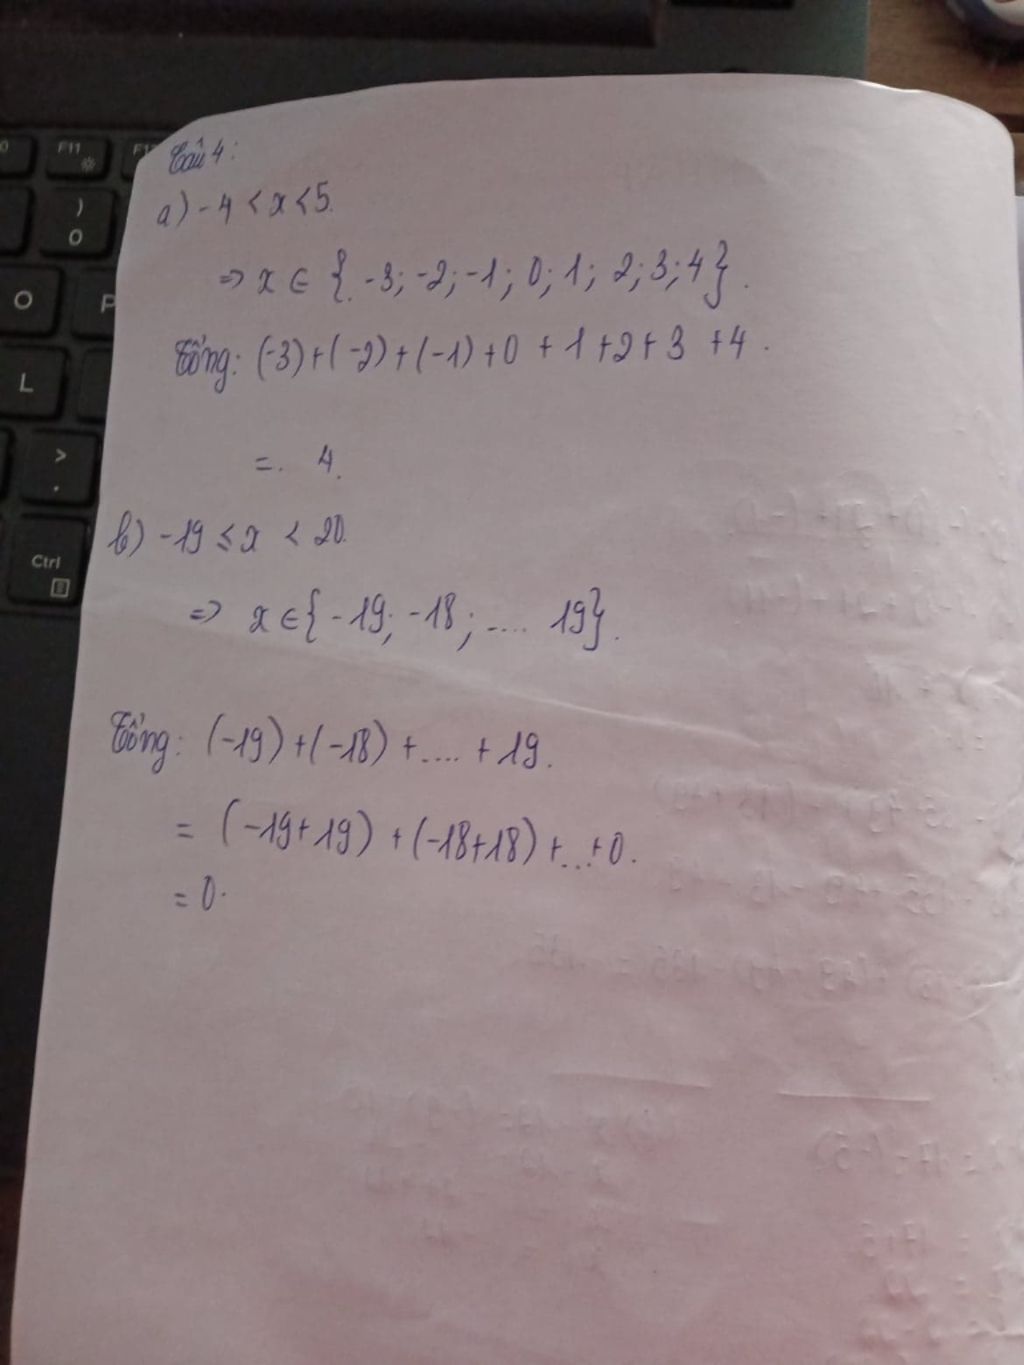 F11
F12
)
0
O
P
L
>
.
Ctrl
Câu 4:
a) -4 < x < 5.
=> x ∈ {-3; -2; -1; 0; 1; 2; 3; 4}.
Tổng: (-3)+(-2)+(-1)+0 +1+2+3 +4.
= 4.
b) -19 ≤ x < 20.
=> x ∈ {-19; -18; .... 19}.
Tổng: (-19)+(-18) +.... +19.
= (-19+19) + (-18+18) +...+0.
= 0.